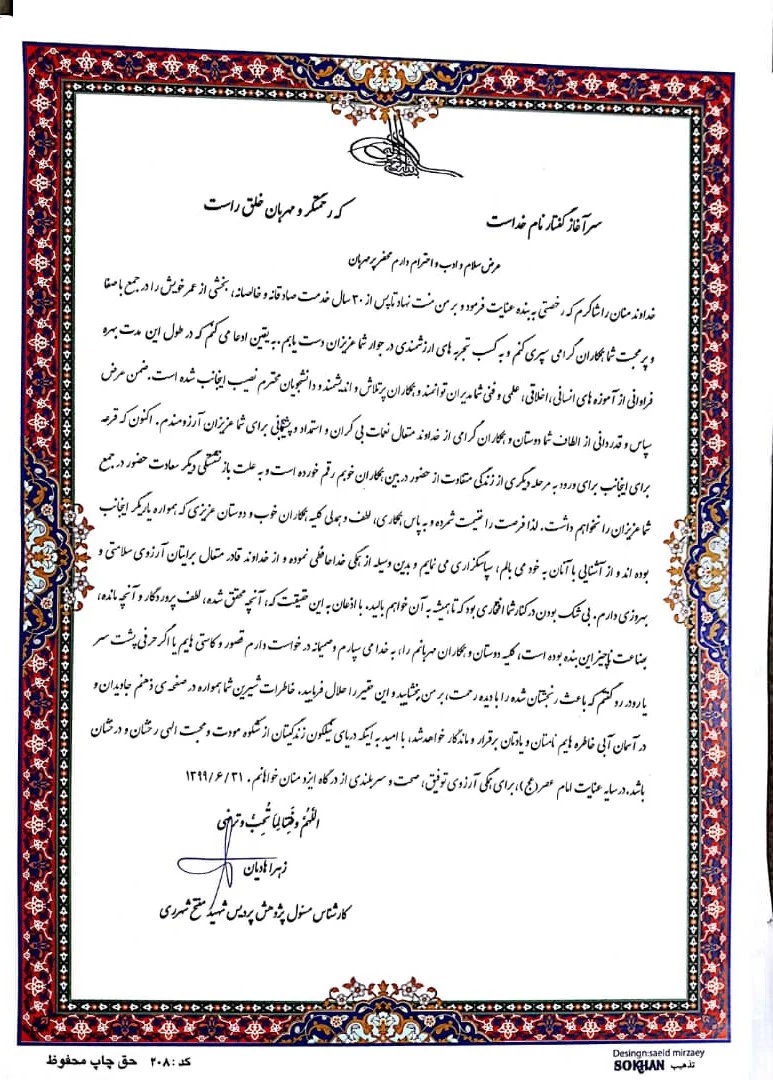 سرآغاز گفتار نام خداست که رحمتگر و مهربان خلق راست
عرض سلام و ادب و احترام دارم محضر پر مهرتان
خداوند منان را شاکرم که رخصتی به بنده عنایت فرمود و بر من منت نهاد تا پس از ۳۰ سال خدمت صادقانه و خالصانه، بخشی از عمر خویش را در جمع با صفا
و پر محبت شما همکاران گرامی سپری کنم و به کسب تجربه های ارزشمندی در جوار شما عزیزان دست یابم. به یقین ادعا می کنم که در طول این مدت بهره
فراوانی از آموزه های انسانی، اخلاقی، علمی و فنی شما مدیران توانمند و همکاران پرتلاش و اندیشمند و دانشجویان محترم نصیب اینجانب شده است. ضمن عرض
سپاس و قدردانی از الطاف شما دوستان و همکاران گرامی از خداوند متعال نعمات بی کران و استمداد و پشتیبانی برای شما عزیزان آرزومندم. اکنون که قرعه
برای اینجانب برای ورود به مرحله دیگری از زندگی متفاوت از حضور در بین همکاران خوبم رقم خورده است و به علت بازنشستگی دیگر سعادت حضور در جمع
شما عزیزان را نخواهم داشت. لذا فرصت را غنیمت شمرده و به پاس همکاری، لطف و همدلی کلیه همکاران خوب و دوستان عزیزی که همواره یاریگر اینجانب
بوده اند و از آشنایی با آنان به خود می بالم، سپاسگزاری می نمایم و بدین وسیله از همگی خداحافظی نموده و از خداوند قادر متعال برایتان آرزوی سلامتی و
بهروزی دارم. بی شک بودن در کنار شما افتخاری بود که تا همیشه به آن خواهم بالید. با اذعان به این حقیقت که، آنچه محقق شده، لطف پروردگار و آنچه مانده،
بضاعت ناچیز این بنده بوده است، کلیه دوستان و همکاران مهربانم را، به خدا می سپارم و صمیمانه درخواست دارم قصور و کاستی هایم یا اگر حرفی پشت سر
یا رو در رو گفتم که باعث رنجشتان شده را با دیده رحمت، بر من ببخشایید و این حقیر را حلال فرمایید. خاطرات شیرین شما همواره در صفحه ی ذهنم جاویدان و
در آسمان آبی خاطره هایم نامتان و یادتان برقرار و ماندگار خواهد شد، با امید به اینکه دریای نیلگون زندگیتان از شکوه مودت و محبت الهی رخشان و درخشان
باشد. در سایه عنایت امام عصر (عج)، برای همگی آرزوی توفیق، صحت و سربلندی از درگاه ایزد منان خواهانم. ۱۳۹۹/۶/۳۱
اللّهُمَّ وَفِّقنا لِما تُحِبُّ وَ تَرضی
زهرا هادیان
کارشناس مسئول پژوهش پردیس شهید مفتح شهرری
کد : ۲۰۸ حق چاپ محفوظ
Desingn:saeid mirzaey
تذهیب SOKHAN